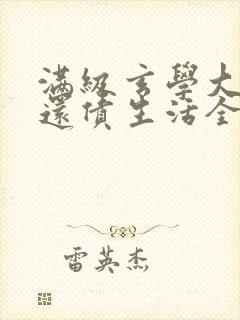 滿級玄學大
還債生活全
雷英杰